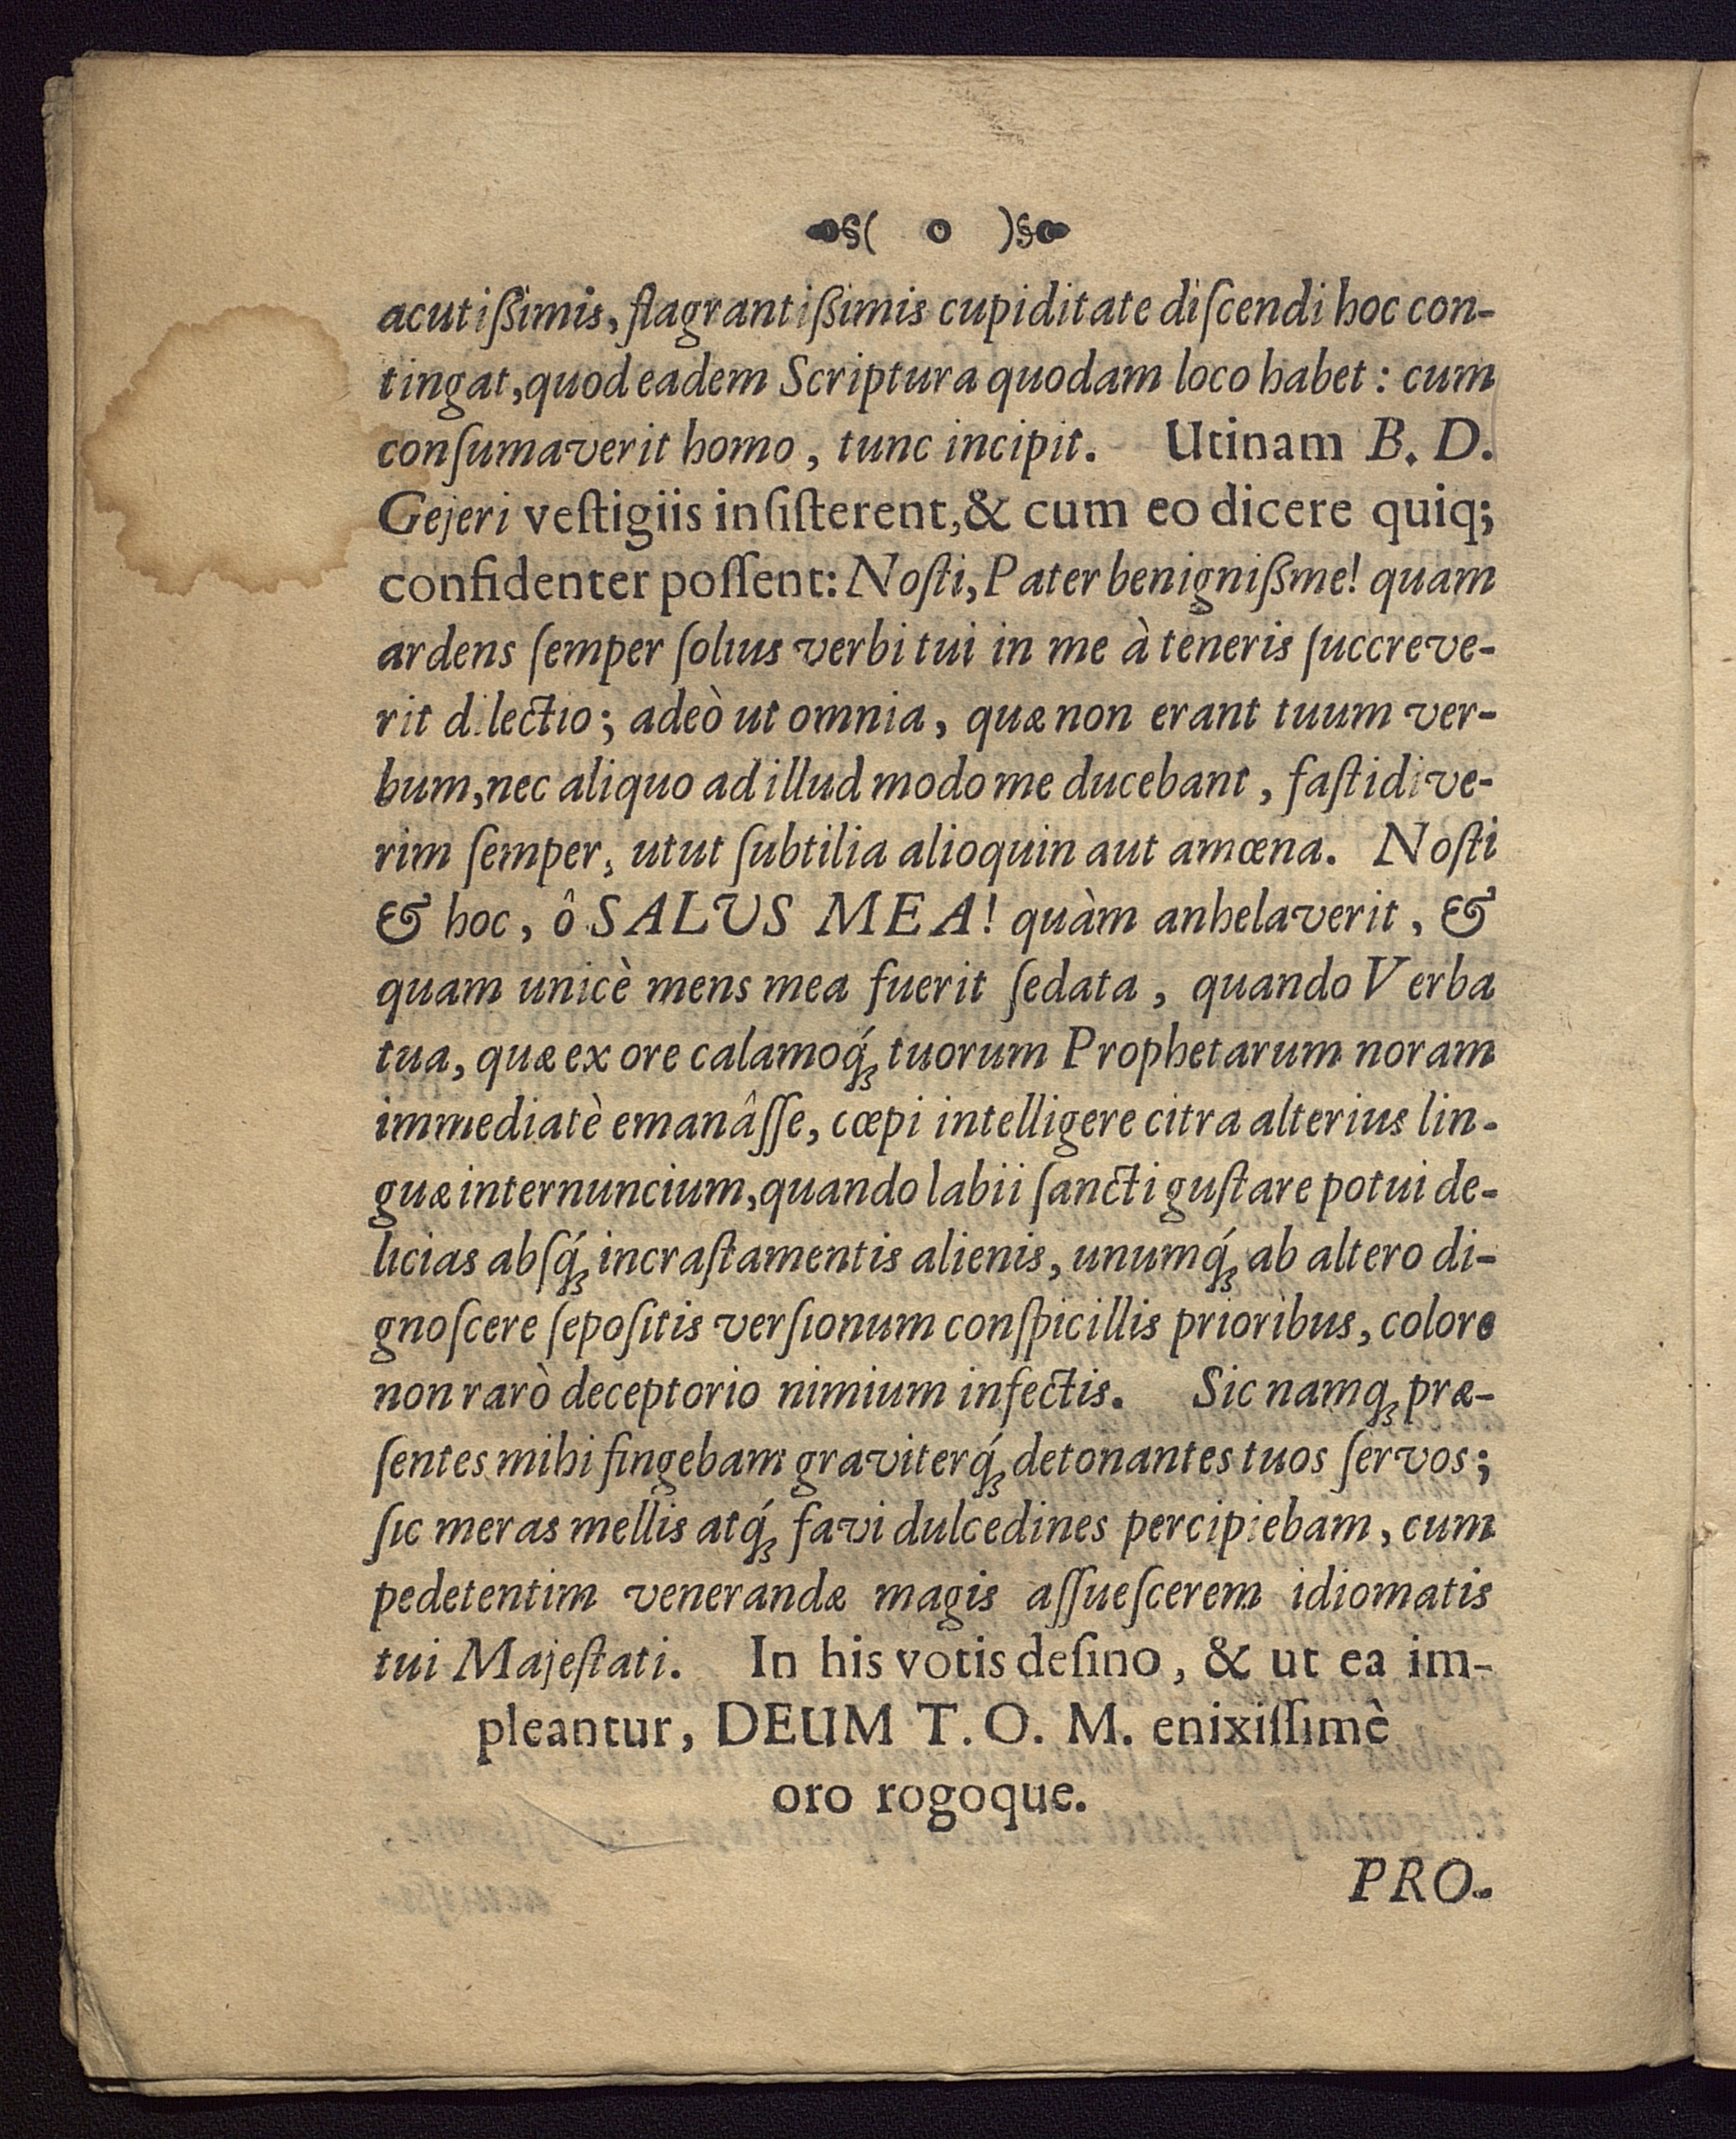 §( o )§
acutißimis, flagrantißimis cupiditate diſcendi hoc con-
tingat, quod eadem Scriptura quodam loco habet: cum
conſumaverit homo, tunc incipit. Utinam B. D.
Gejeri veſtigiis inſiſterent, & cum eo dicere quiq;
confidenter poſſent: Noſti, Pater benignißme! quam
ardens ſemper ſolius verbi tui in me à teneris ſuccreve-
rit dilectio; adeò ut omnia, quæ non erant tuum ver-
bum, nec aliquo ad illud modo me ducebant, faſtidive-
rim ſemper, utut ſubtilia alioquin aut amœna. Noſti
& hoc, ô SALUS MEA! quàm anhelaverit, &
quam unicè mens mea fuerit ſedata, quando Verba
tua, quæ ex ore calamoq́; tuorum Prophetarum noram
immediatè emanâſſe, cœpi intelligere citra alterius lin-
guæ internuncium, quando labii ſancti guſtare potui de-
licias abſq́; incraſtamentis alienis, unumq́; ab altero di-
gnoſcere ſepoſitis verſionum conſpicillis prioribus, colore
non rarò deceptorio nimium infectis. Sic namq; præ-
ſentes mihi fingebam graviterq́; detonantes tuos ſervos;
ſic meras mellis atq́; favi dulcedines percipiebam, cum
pedetentim venerandæ magis aſſueſcerem idiomatis
tui Majeſtati. In his votis deſino, & ut ea im-
pleantur, DEUM T. O. M. enixiſſimè
oro rogoque.
PRO-